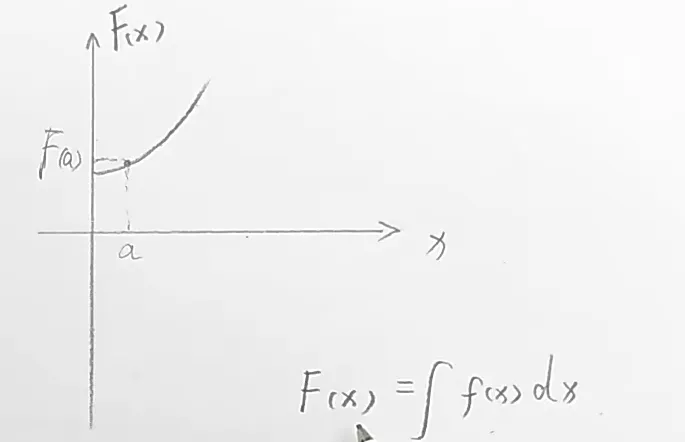 F(x)
F(a)
a
x
F(x) = ∫ f(x) dx